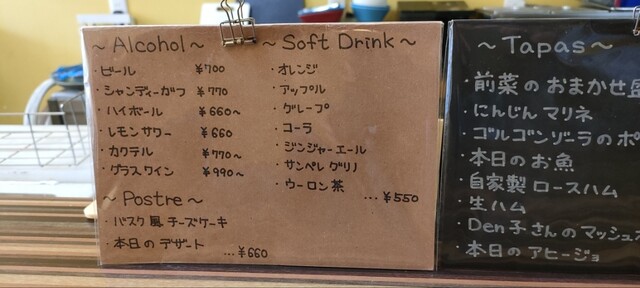 ~Alcohol~
・ビール ¥700
・シャンディーガフ ¥770
・ハイボール ¥660~
・レモンサワー ¥660
・カクテル ¥770~
・グラスワイン ¥990~
~Postre~
・バスク風チーズケーキ
・本日のデザート
...¥660
~Soft Drink~
・オレンジ
・アップル
・グレープ
・コーラ
・ジンジャーエール
・サンペレグリノ
・ウーロン茶
...¥550
~Tapas~
・前菜のおまかせ盛
・にんじんマリネ
・ゴルゴンゾーラのポ
・本日のお魚
・自家製ロースハム
・生ハム
・Den子さんのマッシュ
・本日のアヒージョ